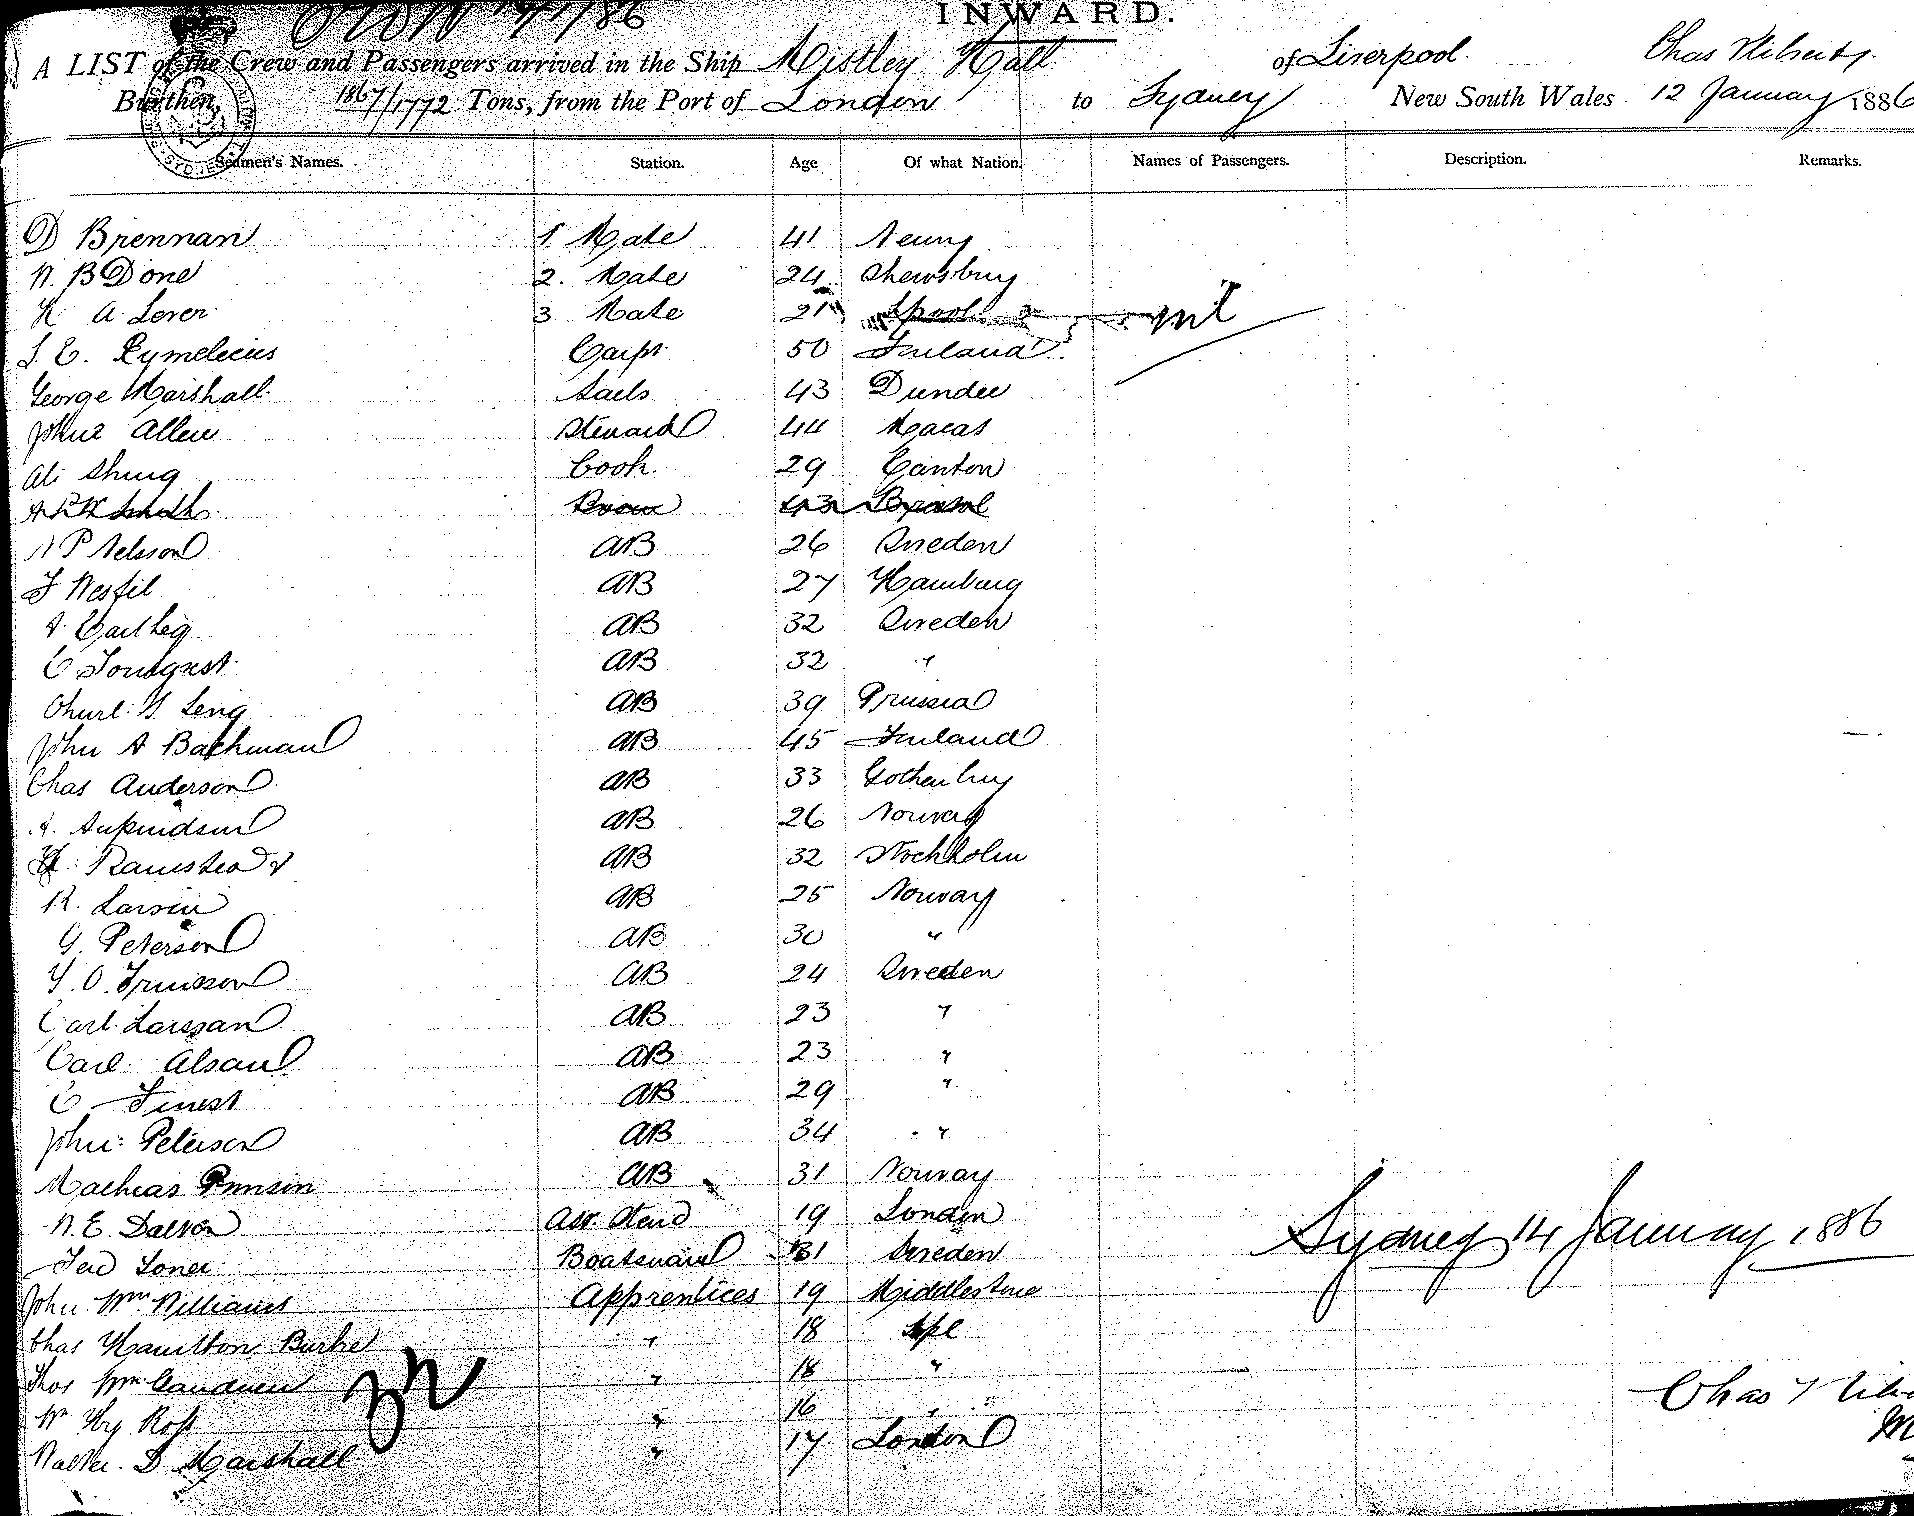 INWARD.
A LIST of the Crew and Passengers arrived in the Ship Mistley Hall of Liverpool Chas
Burthen, 1867/1772 Tons, from the Port of London to Sydney New South Wales 12 January 1886
Seamen's Names. Station. Age Of what Nation. Names of Passengers. Description. Remarks.
D Brennan 1. Mate 41 Newry
W. B Done 2. Mate 24 Shewsbury
H A Lever 3 Mate 21 Lpool nil
Carpr 50 Finland
George Marshall Sails 43 Dundee
John Allen Steward 44 Macas
Ah Shing Cook 29 Canton
Smith 43 Bristol
N P Nelsson AB 26 Sweden
F Wesfil AB 27 Hamburg
AB 32 Sweden
C Tornquist AB 32 "
AB 39 Prussia
John A Backman AB 45 Finland
Chas Anderson AB 33 Gothenburg
A. AB 26 Norway
AB 32 Stockholm
R. Larsin AB 25 Norway
G. Peterson AB 30 "
AB 24 Sweden
Carl Larssan AB 23 "
Carl Alsaul AB 23 "
C Finest AB 29 "
John Peterson AB 34 "
Mathias AB 31 Norway
W. E. Dalton Ass. Stewd 19 London
Boatswain 31 Sweden
Sydney 14 January 1886
John Wm Williams Apprentices 19 Middlestone
Chas Hamilton Burke " 18 Lpl
Thos Wm Gardner " 18 "
Chas
Wm Hy Ross " 16 "
Walter D Marshall " 17 London